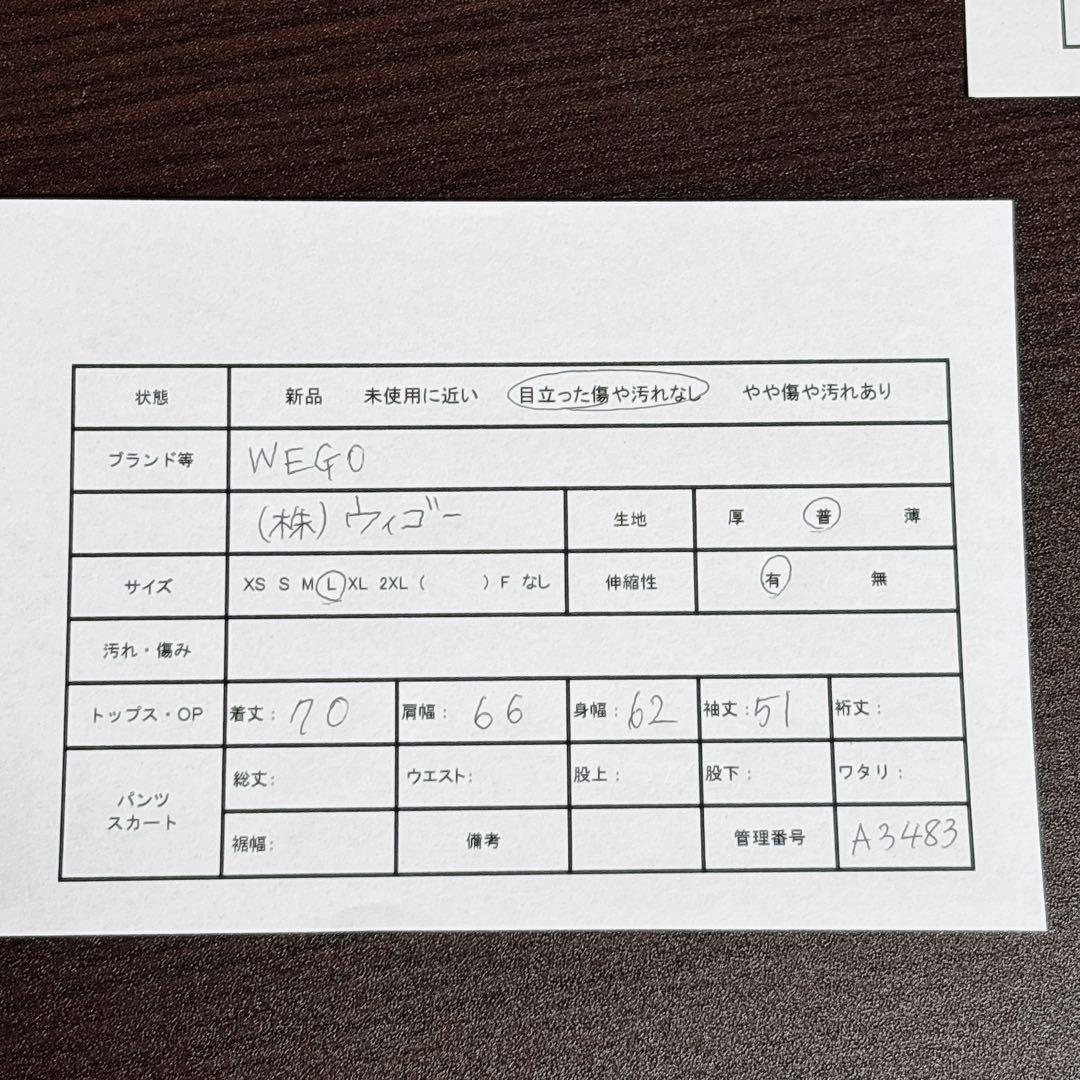 状態 新品 未使用に近い 目立った傷や汚れなし やや傷や汚れあり
ブランド等 WEGO
(株)ウィゴー 生地 厚 普 薄
サイズ XS S M L XL 2XL ( ) F なし 伸縮性 有 無
汚れ・傷み
トップス・OP 着丈: 70 肩幅: 66 身幅: 62 袖丈: 51 裄丈:
パンツ 総丈: ウエスト: 股上: 股下: ワタリ:
スカート 裾幅: 備考 管理番号 A3483